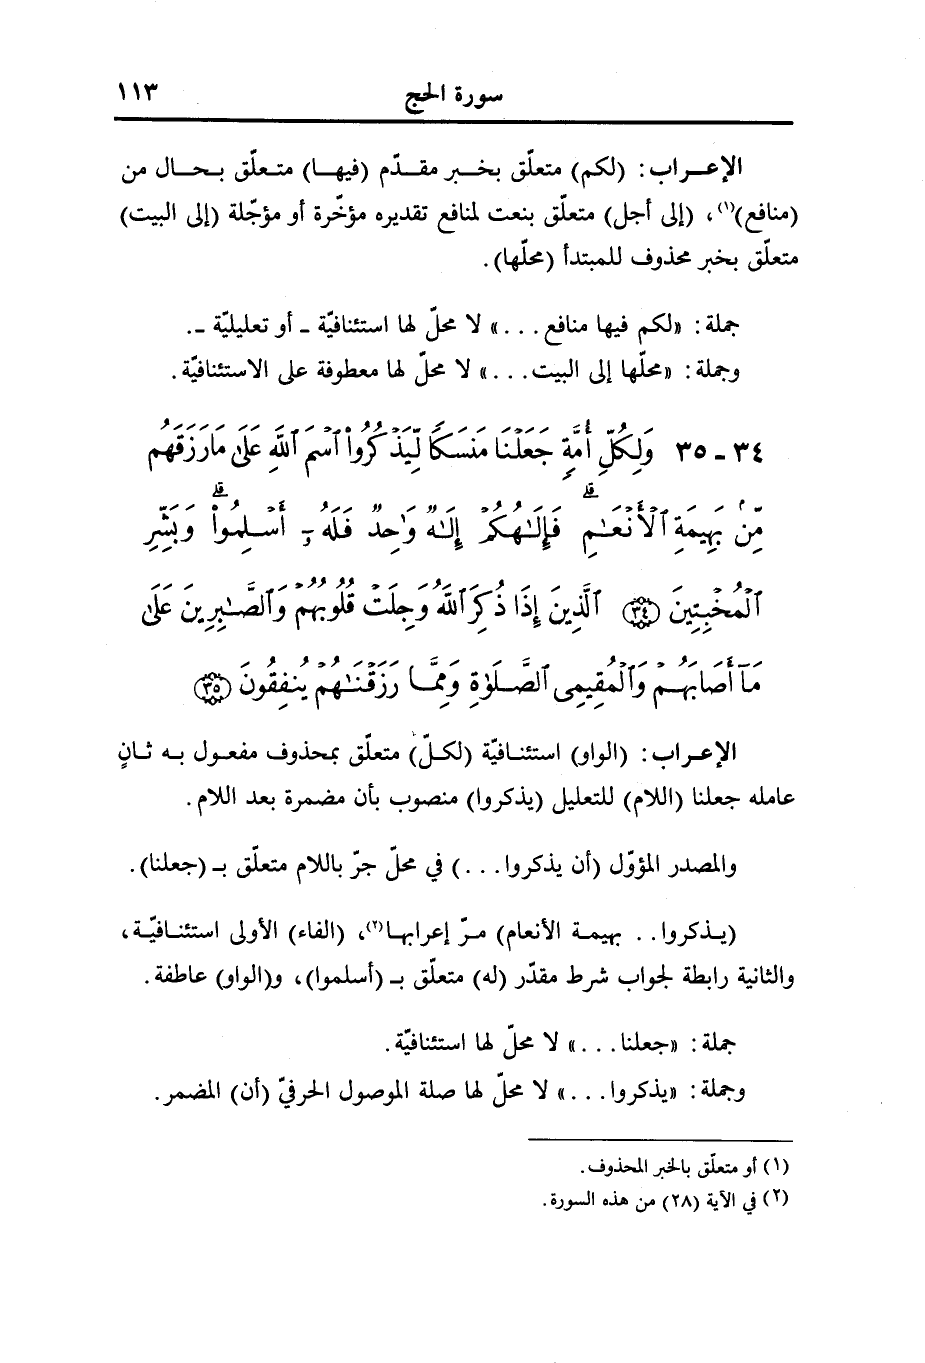 سورة الحج ١١٣
الإعـراب: (لكم) متعلّق بخـبر مقـدّم (فيهـا) متـعلّق بـحـال من
(منافع)(١)، (إلى أجل) متعلّق بنعت لمنافع تقديره مؤخّرة أو مؤجّلة (إلى البيت)
متعلّق بخبر محذوف للمبتدأ (محلّها).
جملة: «لكم فيها منافع...» لا محلّ لها استئنافيّة ـ أو تعليليّة ـ.
وجملة: «محلّها إلى البيت...» لا محلّ لها معطوفة على الاستئنافيّة.
٣٤ ـ ٣٥ وَلِكُلِّ أُمَّةٍ جَعَلْنَا مَنسَكًا لِّيَذْكُرُوا۟ ٱسْمَ ٱللَّهِ عَلَىٰ مَا رَزَقَهُم
مِّنۢ بَهِيمَةِ ٱلْأَنْعَٰمِ ۗ فَإِلَٰهُكُمْ إِلَٰهٌ وَٰحِدٌ فَلَهُۥٓ أَسْلِمُوا۟ ۗ وَبَشِّرِ
ٱلْمُخْبِتِينَ ﴿٣٤﴾ ٱلَّذِينَ إِذَا ذُكِرَ ٱللَّهُ وَجِلَتْ قُلُوبُهُمْ وَٱلصَّٰبِرِينَ عَلَىٰ
مَآ أَصَابَهُمْ وَٱلْمُقِيمِى ٱلصَّلَوٰةِ وَمِمَّا رَزَقْنَٰهُمْ يُنفِقُونَ ﴿٣٥﴾
الإعـراب: (الواو) استئنـافيّة (لكـلّ) متعلّق بمحذوف مفعـول بـه ثـانٍ
عامله جعلنا (اللام) للتعليل (يذكروا) منصوب بأن مضمرة بعد اللام.
والمصدر المؤوّل (أن يذكروا...) في محلّ جرّ باللام متعلّق بـ (جعلنا).
(يـذكروا.. بهيمـة الأنعام) مـرّ إعرابهـا(٢)، (الفاء) الأولى استئنـافيّـة،
والثانية رابطة لجواب شرط مقدّر (له) متعلّق بـ (أسلموا)، و(الواو) عاطفة.
جملة: «جعلنا...» لا محلّ لها استئنافيّة.
وجملة: «يذكروا...» لا محلّ لها صلة الموصول الحرفيّ (أن) المضمر.
(١) أو متعلّق بالخبر المحذوف.
(٢) في الآية (٢٨) من هذه السورة.